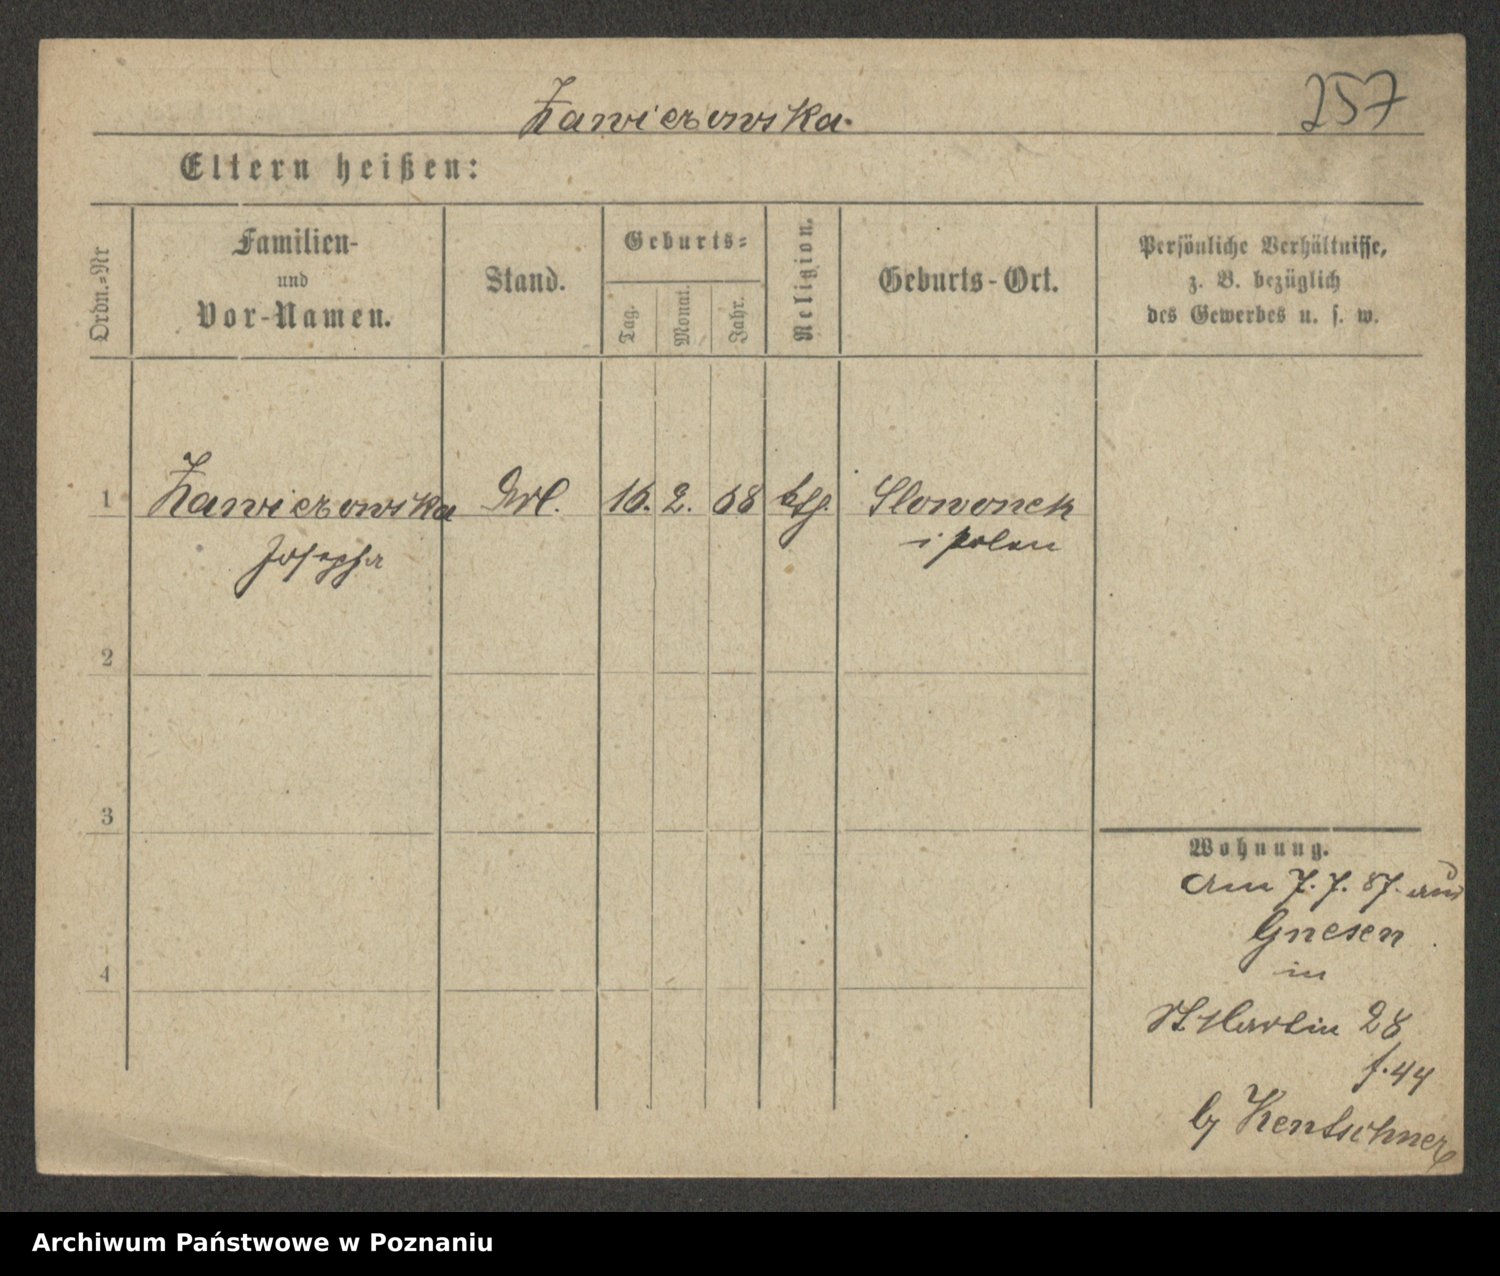 Zawierowska.
257
Eltern heißen:
Ordn.=Nr
Familien-
und
Vor-Namen.
Stand.
Geburts=
Tag.
Monat.
Jahr.
Religion.
Geburts-Ort.
Persönliche Verhältnisse,
z. B. bezüglich
des Gewerbes u. s. w.
1 Zawierowska 16. 2. 68 kth. Slowonek
Josepha i polen
2
3
4
Wohnung.
Am 7.7.87. aus
Gnesen
in
St Martin 28
f. 44
by Kentschner